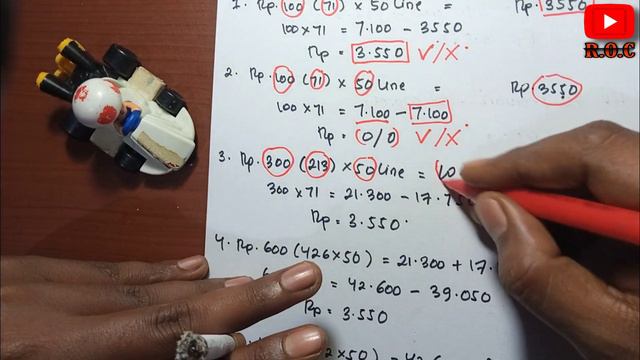 1. Rp. 100 (71) × 50 Line = Rp. 3550
100 × 71 = 7.100 - 3550
Rp = 3.550 √/×.
R.O.C
2. Rp. 100 (71) × 50 Line = Rp 3550
100 × 71 = 7.100 - 7.100
Rp = (0/0) √/×.
3. Rp. 300 (213) × 50 Line = 10
300 × 71 = 21.300 - 17.750
Rp = 3.550.
4. Rp. 600 (426 × 50) = 21.300 + 17.
= 42.600 - 39.050
Rp = 3.550
2 × 50) =